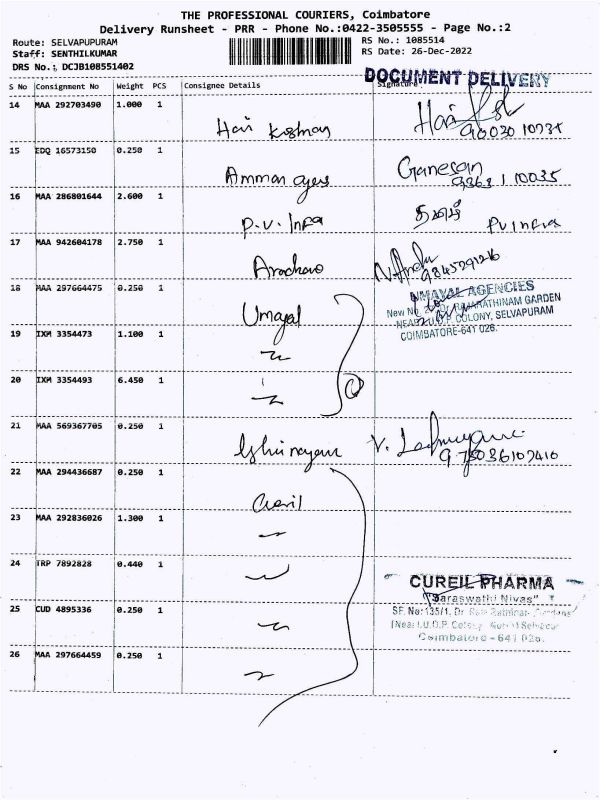 THE PROFESSIONAL COURIERS, Coimbatore
Delivery Runsheet - PRR - Phone No.:0422-3505555 - Page No.:2
Route: SELVAPUPURAM
Staff: SENTHILKUMAR
DRS No.: DCJB108551402
RS No.: 1085514
RS Date: 26-Dec-2022
DOCUMENT DELIVERY
S No Consignment No Weight PCS Consignee Details Signature
14 MAA 292703490 1.000 1
Hari
15 EDQ 16573150 0.250 1
Amman Ganesan
16 MAA 286801644 2.600 1
P.V. Infra PV infra
17 MAA 942604178 2.750 1
18 MAA 297664475 0.250 1
Umayal
UMAYAL AGENCIES
RAJARATHINAM GARDEN
NEAR I.U.D.P. COLONY, SELVAPURAM
COIMBATORE-641 026.
19 IXM 3354473 1.100 1
20 IXM 3354493 6.450 1
21 MAA 569367705 0.250 1
22 MAA 294436687 0.250 1
23 MAA 292836026 1.300 1
24 TRP 7892828 0.440 1
CUREIL PHARMA
"Saraswathi Nivas"
25 CUD 4895336 0.250 1
SF. No: 135/1, Dr.
Coimbatore - 641 026.
26 MAA 297664459 0.250 1